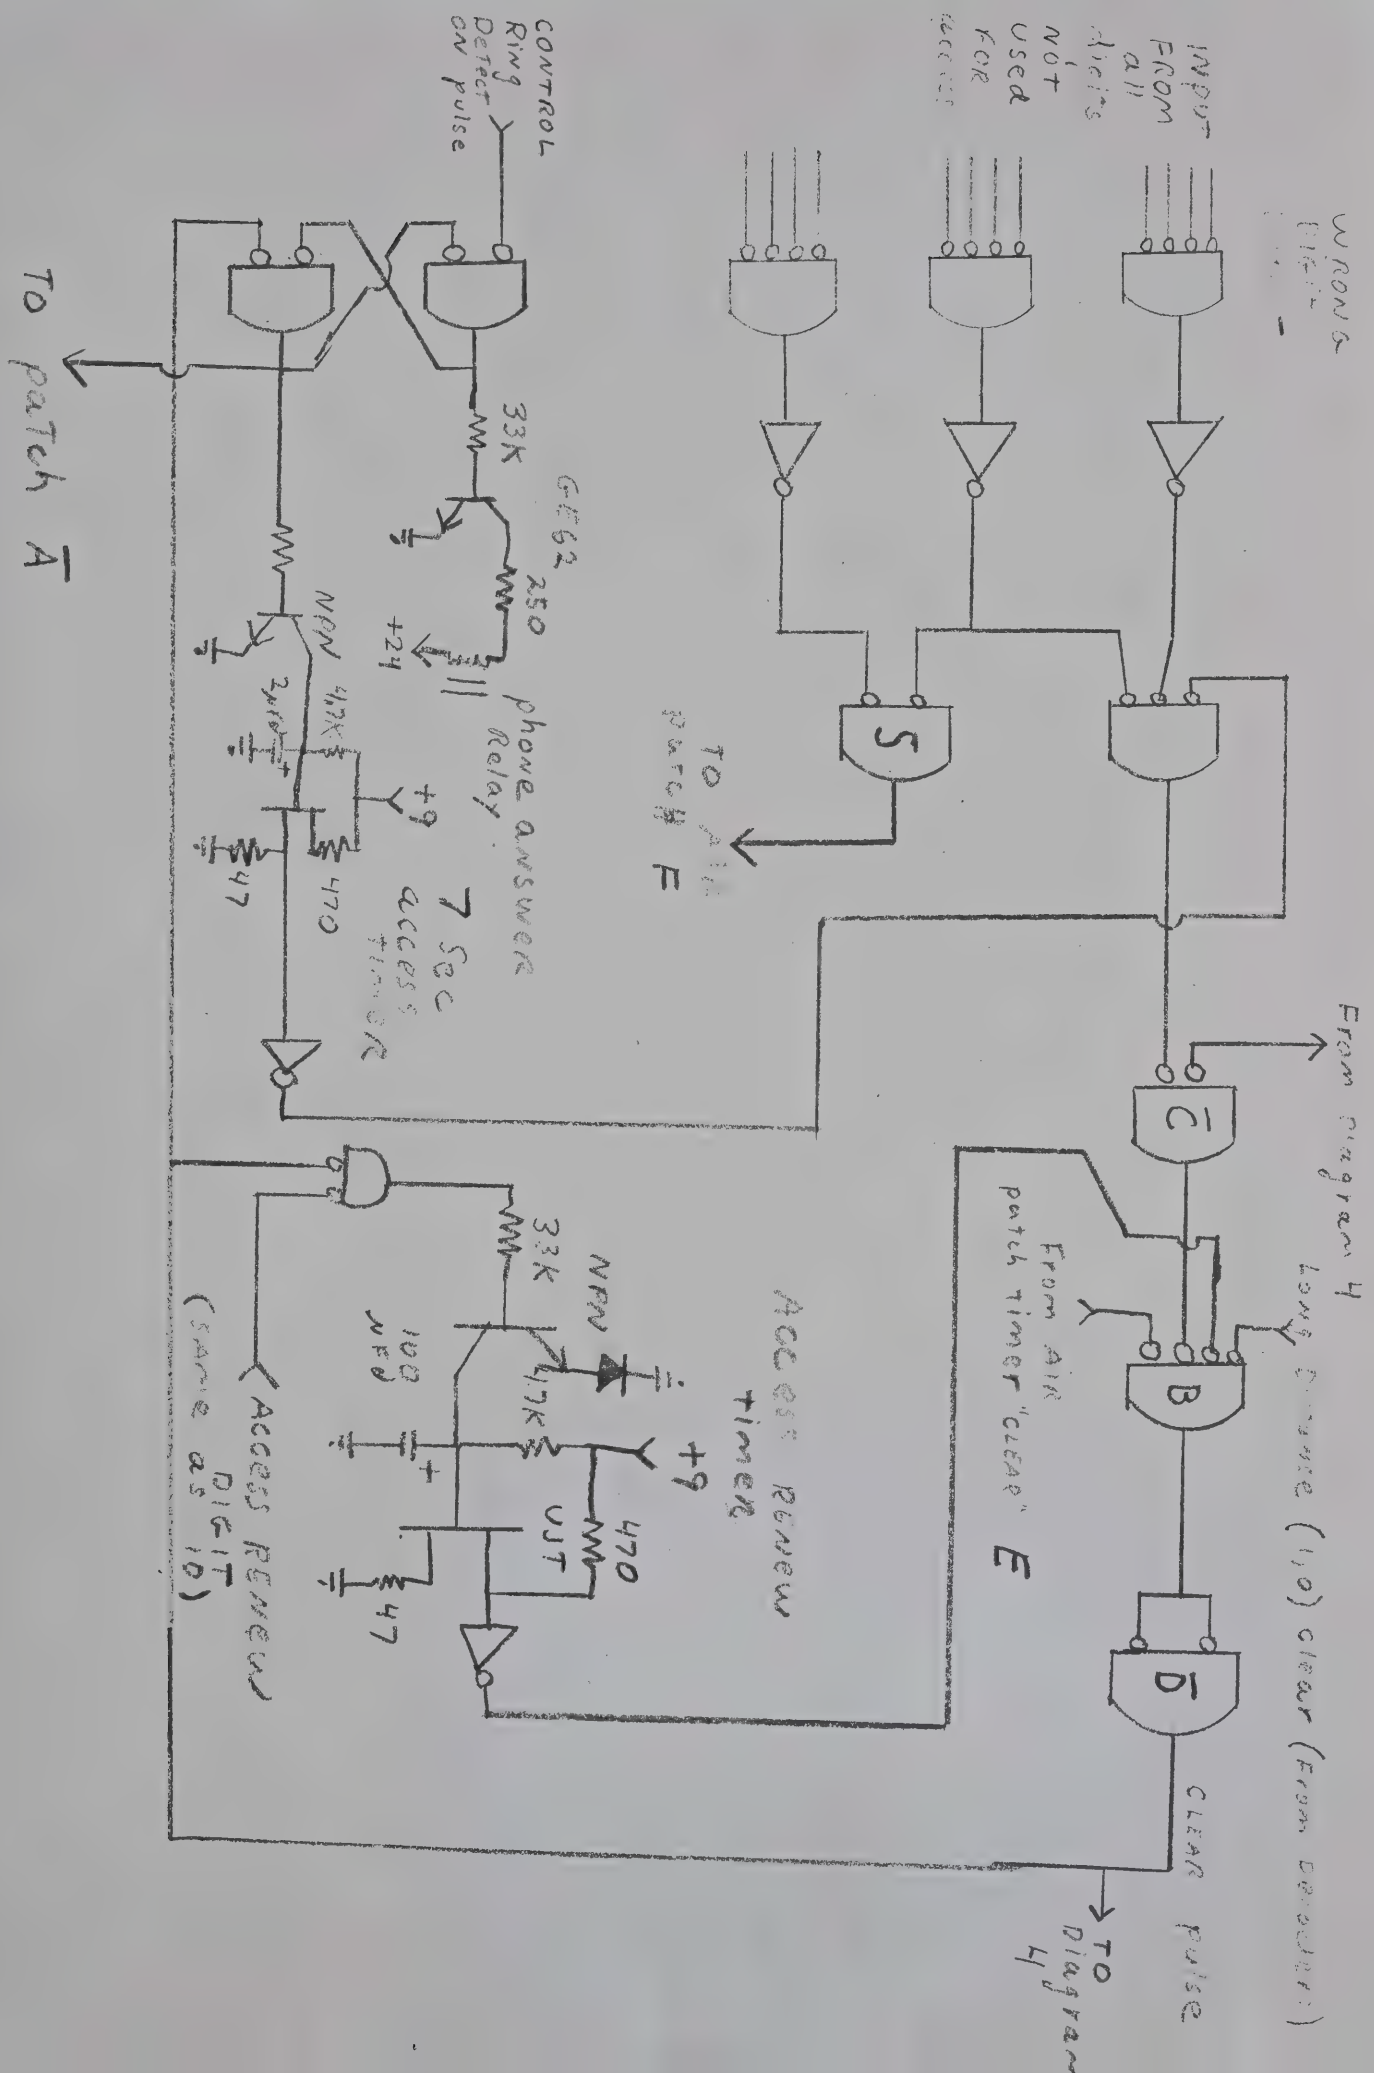 WRONG
INPUT
FROM
all
digits
NOT
used
FOR
CONTROL
Ring
Detect
ON pulse
TO patch A
33K
GE62
250
+24
phone answer
Relay
NPN
4.7K
+
+9
470
47
7 Sec
access
TIMER
S
TO AIR
patch F
From Diagram 4
C
Long Distance (1,0) clear (From Decoder)
From AIR
patch timer "CLEAR" E
B
D
CLEAR pulse
TO
Diagram
4
Access RENEW
timer
33K
NPN
100
MFD
4.7K
+
+9
470
UJT
47
ACCESS RENEW
DIGIT
(same as 10)